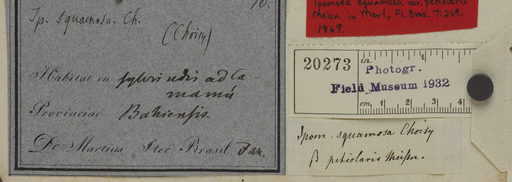 10.
Ip. squamosa. Ch.
(Choisy)
Habitat in sylvis udis ad Ca-
mamú
Provinciae Bahiensis.
Dr Martius Iter Brasil Jan.
Ipomoea squamosa var. petiolaris
Meisn. in Mart., Fl. Bras. 7: 269.
1869.
20273
in. 1 2
Photogr.
Field Museum 1932
cm. 1 2 3 4
Ipom. squamosa Choisy
β petiolaris Meissn.